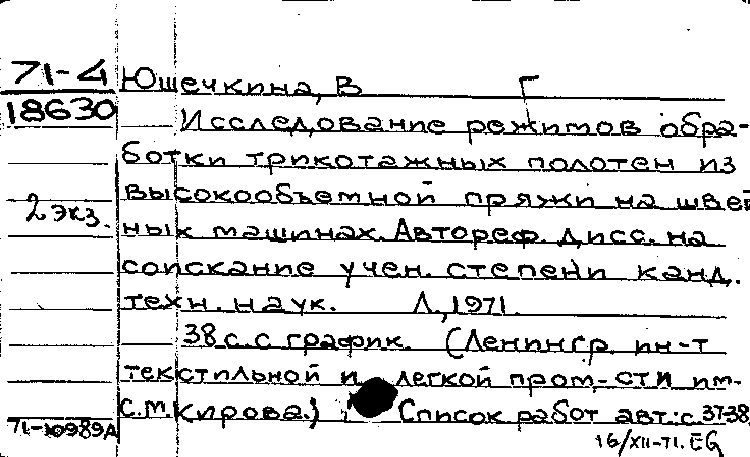 71-4
18630
2 экз.
Юшечкина, В Г
Исследование режимов обра-
ботки трикотажных полотен из
высокообъемной пряжи на швей
ных машинах. Автореф. дисс. на
соискание учен. степени канд.
техн. наук. Л., 1971.
38 с. с график. (Ленингр. ин-т
текстильной и легкой пром-сти им.
С.М. Кирова.) Список работ авт.: с. 37-38
71-10989А
16/XII-71. EG